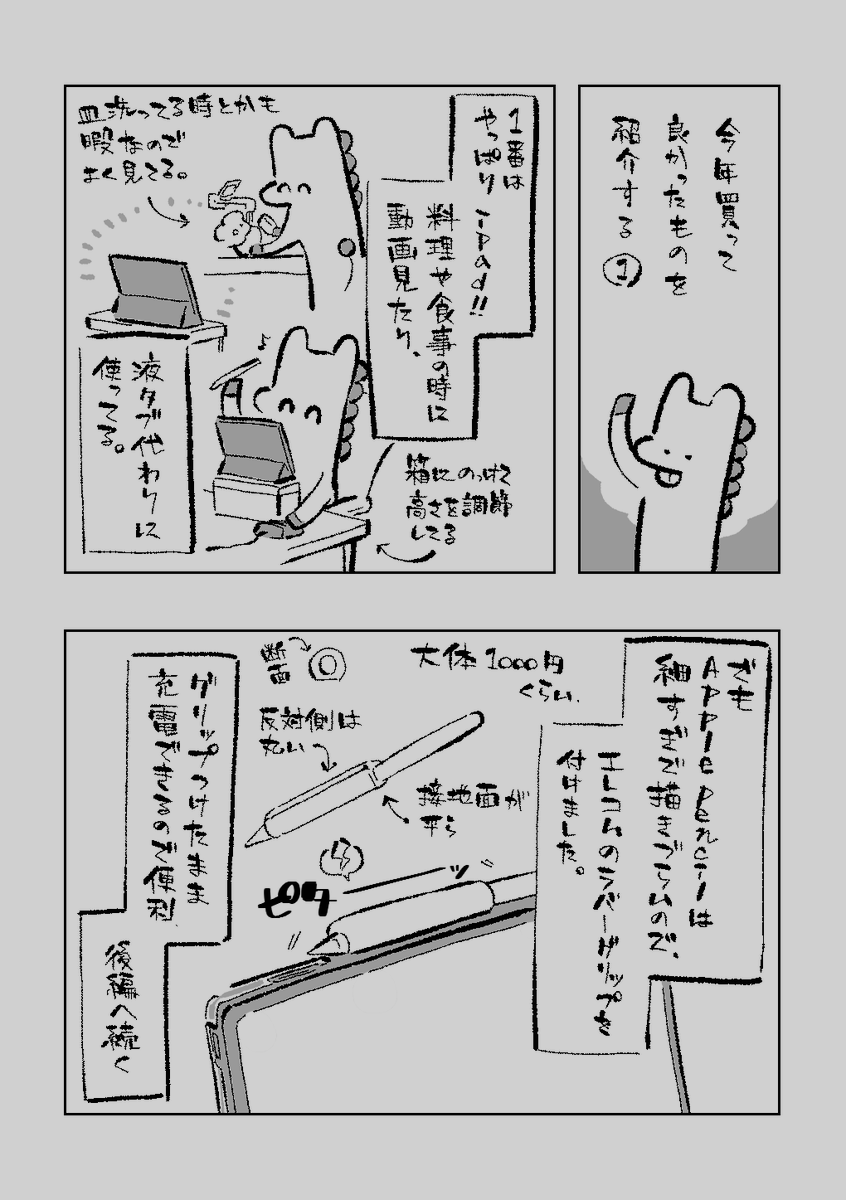 今年買って
良かったものを
紹介する①
1番は
やっぱりipad!!
料理や食事の時に
動画見たり、
皿洗ってる時とかも
暇なので
よく見てる。
液タブ代わりに
使ってる。
箱にのっけて
高さを調節
してる
でも
Apple Pencilは
細すぎて描きづらいので、
エレコムのラバーグリップを
付けました。
大体1000円
くらい。
断面
反対側は
丸い
接地面が
平ら
ピタッ
グリップつけたまま
充電できるので便利
後編へ続く